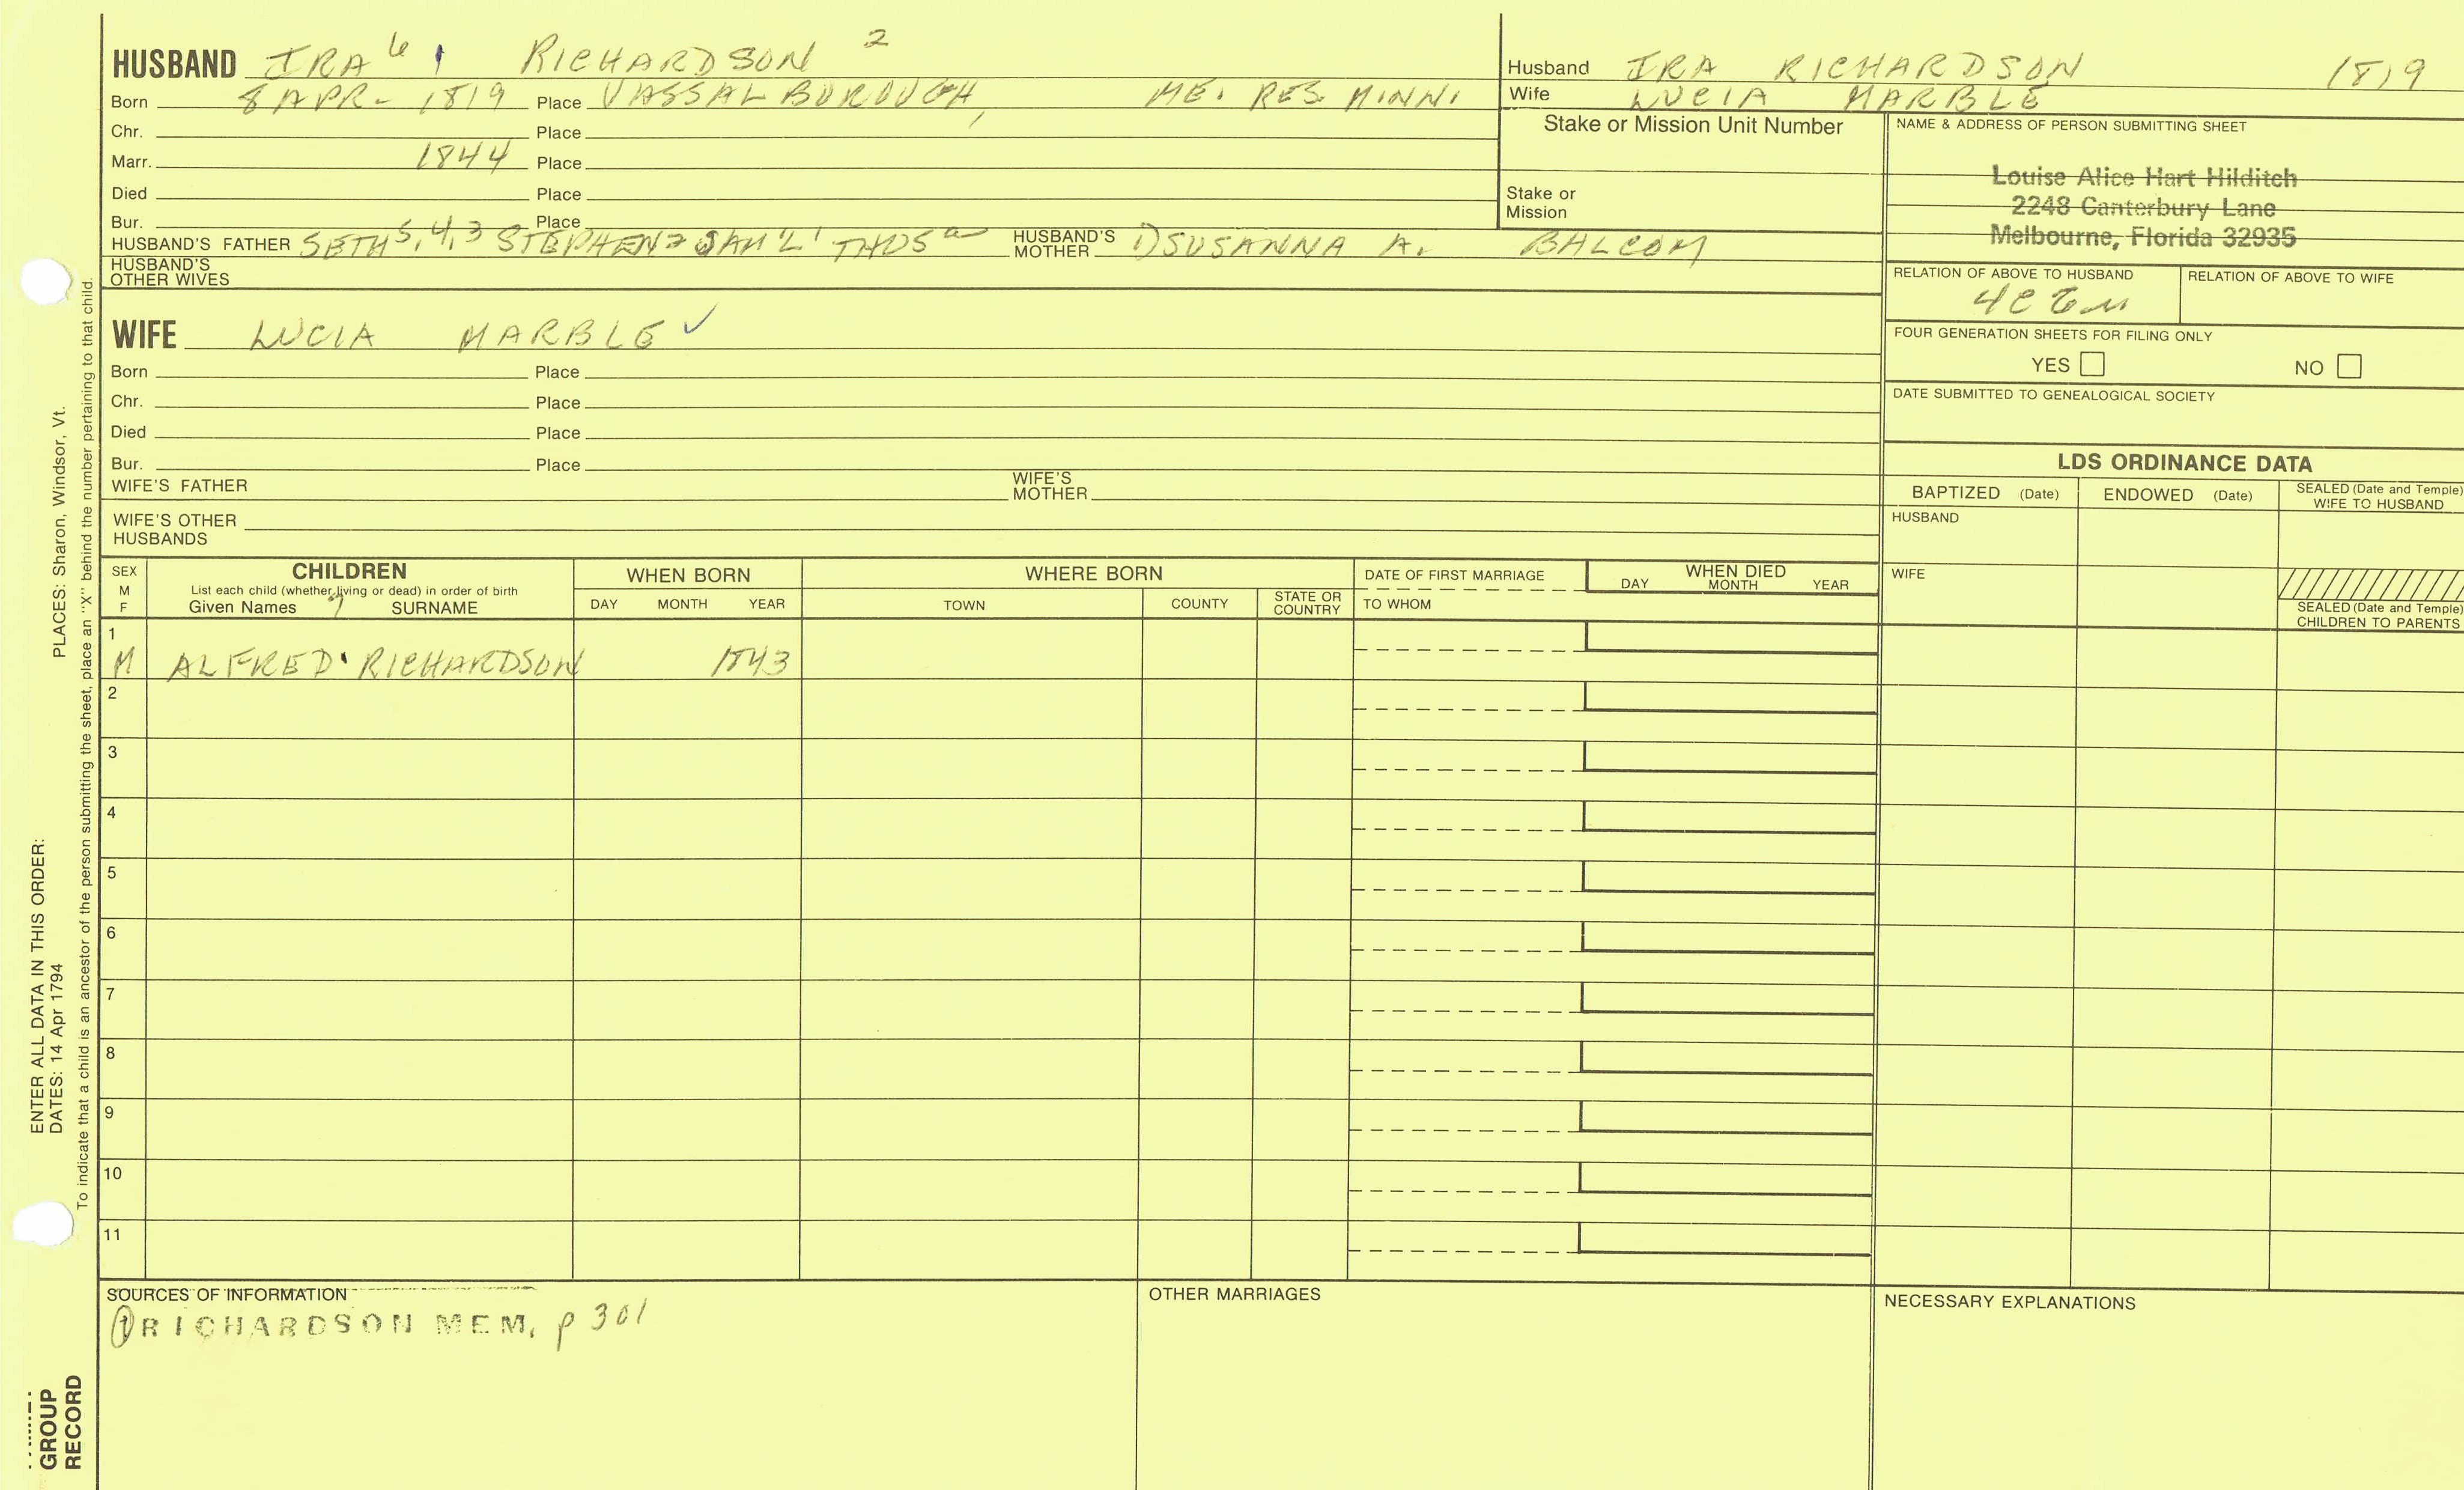 HUSBAND IRA 6 1 RICHARDSON 2
Born 8 APR- 1819 Place VASSALBOROUGH, ME. RES. MINN.
Chr. Place
Marr. 1844 Place
Died Place
Bur. Place
HUSBAND'S FATHER SETH 5,4,3 STEPHEN 2 SAM'L 1 THOS a HUSBAND'S MOTHER 1) SUSANNA A. BALCOM
HUSBAND'S OTHER WIVES
Husband IRA RICHARDSON 1819
Wife LUCIA MARBLE
Stake or Mission Unit Number
Stake or
Mission
NAME & ADDRESS OF PERSON SUBMITTING SHEET
Louise Alice Hart Hilditch
2248 Canterbury Lane
Melbourne, Florida 32935
RELATION OF ABOVE TO HUSBAND RELATION OF ABOVE TO WIFE
FOUR GENERATION SHEETS FOR FILING ONLY
YES NO
DATE SUBMITTED TO GENEALOGICAL SOCIETY
WIFE LUCIA MARBLE ✓
Born Place
Chr. Place
Died Place
Bur. Place
WIFE'S FATHER WIFE'S MOTHER
WIFE'S OTHER HUSBANDS
LDS ORDINANCE DATA
BAPTIZED (Date) ENDOWED (Date) SEALED (Date and Temple) WIFE TO HUSBAND
HUSBAND
WIFE
SEALED (Date and Temple)
CHILDREN TO PARENTS
SEX M F CHILDREN WHEN BORN WHERE BORN DATE OF FIRST MARRIAGE WHEN DIED
List each child (whether living or dead) in order of birth
Given Names SURNAME DAY MONTH YEAR TOWN COUNTY STATE OR COUNTRY TO WHOM DAY MONTH YEAR
1
M ALFRED RICHARDSON 1843
2
3
4
5
6
7
8
9
10
11
SOURCES OF INFORMATION
1 RICHARDSON MEM, p 301
OTHER MARRIAGES
NECESSARY EXPLANATIONS
ENTER ALL DATA IN THIS ORDER:
DATES: 14 Apr 1794 PLACES: Sharon, Windsor, Vt.
To indicate that a child is an ancestor of the person submitting the sheet, place an "X" behind the number pertaining to that child.
GROUP
RECORD